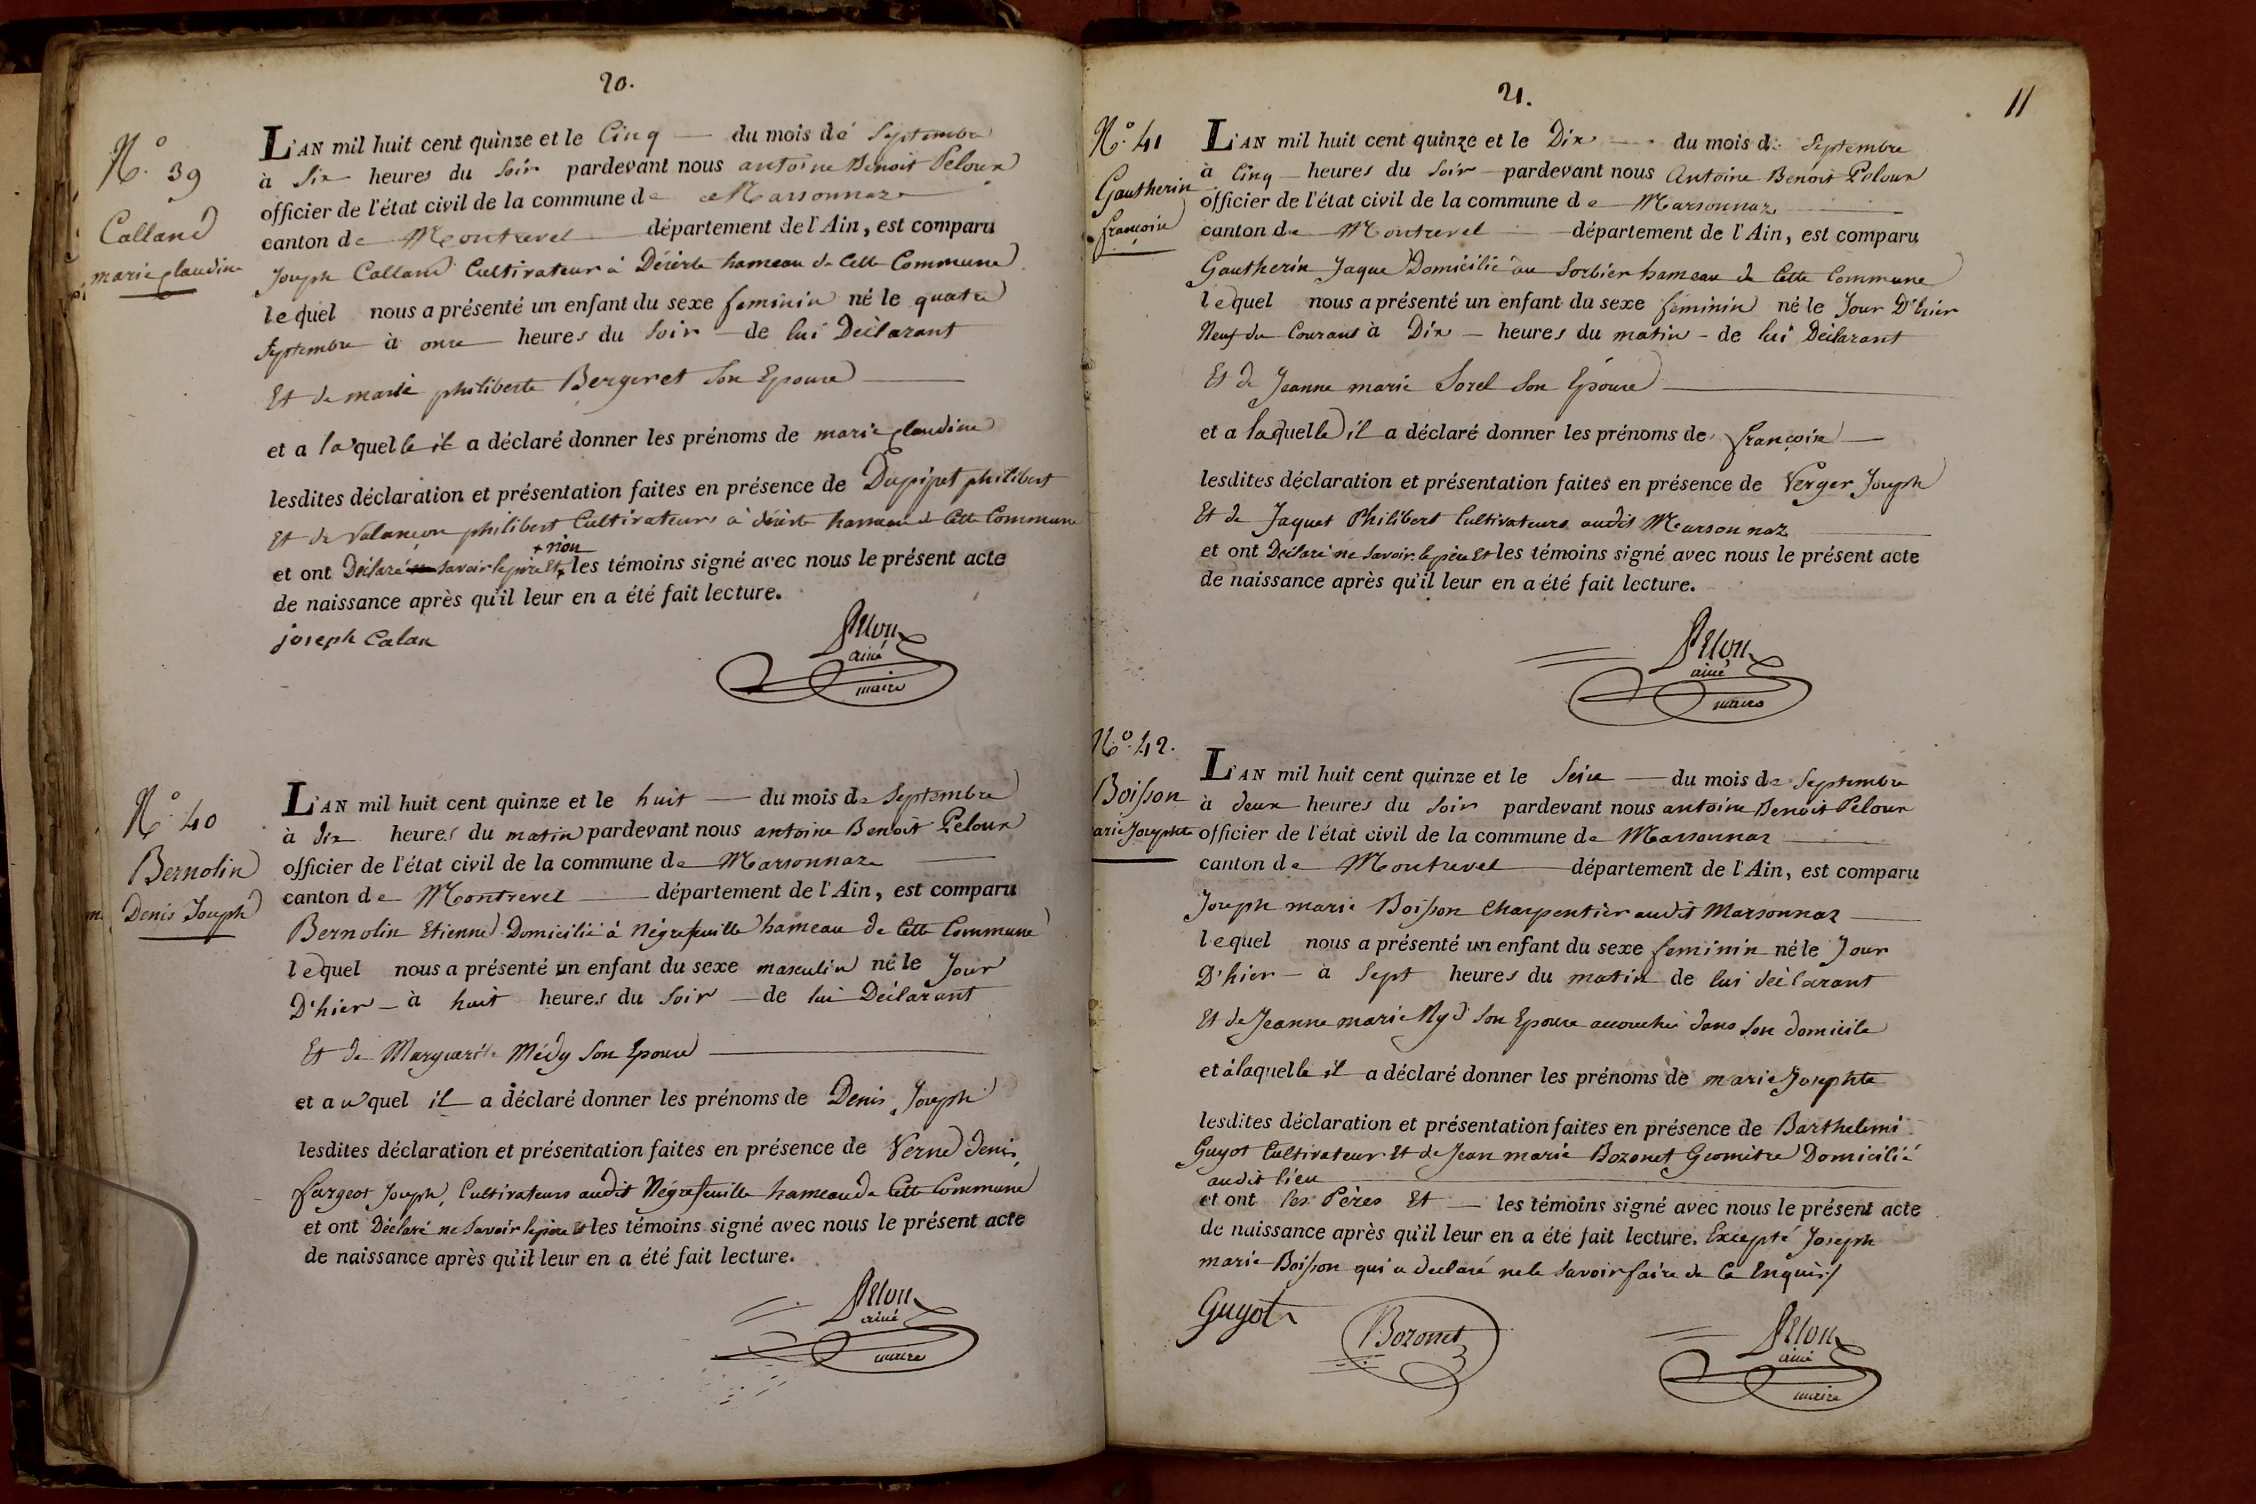 20.
N.° 39
Calland
marie claudine
L'AN mil huit cent quinze et le Cinq du mois de Septembre
à Six heures du Soir pardevant nous antoine Benoit Peloux
officier de l'état civil de la commune de Marsonnaz
canton de Montrevel département de l'Ain, est comparu
Joseph Calland Cultivateur à Désirte hameau de Cette Commune
lequel nous a présenté un enfant du sexe feminin né le quatre
Septembre à onze heures du Soir de lui Déclarant
Et de marie philiberte Bergeret Son Epouse
et a laquelle il a déclaré donner les prénoms de marie claudine
lesdites déclaration et présentation faites en présence de Dupipet philibert
Et de Valançon philibert Cultivateurs à désirte hameau de Cette Commune
+ non
et ont Déclaré ne savoir le père Et + les témoins signé avec nous le présent acte
de naissance après qu'il leur en a été fait lecture.
joseph Calan
Peloux
ainé
maire
N.° 40
Bernolin
Denis Joseph
L'AN mil huit cent quinze et le huit du mois de Septembre
à dix heures du matin pardevant nous antoine Benoit Peloux
officier de l'état civil de la commune de Marsonnaz
canton de Montrevel département de l'Ain, est comparu
Bernolin Etienne Domicilié à Négrefeuille hameau de Cette Commune
lequel nous a présenté un enfant du sexe masculin né le Jour
D'hier à huit heures du Soir de lui Déclarant
Et de Marguerite Médy Son Epouse
et auquel il a déclaré donner les prénoms de Denis Joseph
lesdites déclaration et présentation faites en présence de Verne denis,
fargeot Joseph, Cultivateurs audit Négrefeuille hameau de Cette Commune
et ont Déclaré ne Savoir le père Et les témoins signé avec nous le présent acte
de naissance après qu'il leur en a été fait lecture.
Peloux
ainé
maire
21.
11
N.° 41
Gautherin
françoise
L'AN mil huit cent quinze et le Dix du mois de Septembre
à Cinq heures du Soir pardevant nous Antoine Benoit Peloux
officier de l'état civil de la commune de Marsonnaz
canton de Montrevel département de l'Ain, est comparu
Gautherin Jaque Domicilié au Sorbier hameau de Cette Commune
lequel nous a présenté un enfant du sexe féminin né le Jour D'hier
Neuf du Courant à Dix heures du matin de lui Déclarant
Et de Jeanne marie Sorel Son Epouse
et a laquelle il a déclaré donner les prénoms de françoise
lesdites déclaration et présentation faites en présence de Verger Joseph
Et de Jaquet Philibert Cultivateurs audit Marsonnaz
et ont Déclaré ne Savoir le père Et les témoins signé avec nous le présent acte
de naissance après qu'il leur en a été fait lecture.
Peloux
ainé
maire
N.° 42.
Boisson
arie Josephte
L'AN mil huit cent quinze et le Seize du mois de Septembre
à deux heures du Soir pardevant nous antoine Benoit Peloux
officier de l'état civil de la commune de Marsonnaz
canton de Montrevel département de l'Ain, est comparu
Joseph marie Boisson Charpentier audit Marsonnaz
lequel nous a présenté un enfant du sexe feminin né le Jour
D'hier à Sept heures du matin de lui déclarant
Et de Jeanne marie Nyd Son Epouse accouchée dans Son domicile
et à laquelle il a déclaré donner les prénoms de marie Josephte
lesdites déclaration et présentation faites en présence de Barthelemi
Guyot Cultivateur Et de Jean marie Bozonet Geomètre Domicilié
audit lieu
et ont les Pères Et les témoins signé avec nous le présent acte
de naissance après qu'il leur en a été fait lecture. Excepté Joseph
marie Boisson qui a declaré ne le Savoir faire de Ce Enquis
Guyot
Bozonet
Peloux
ainé
maire